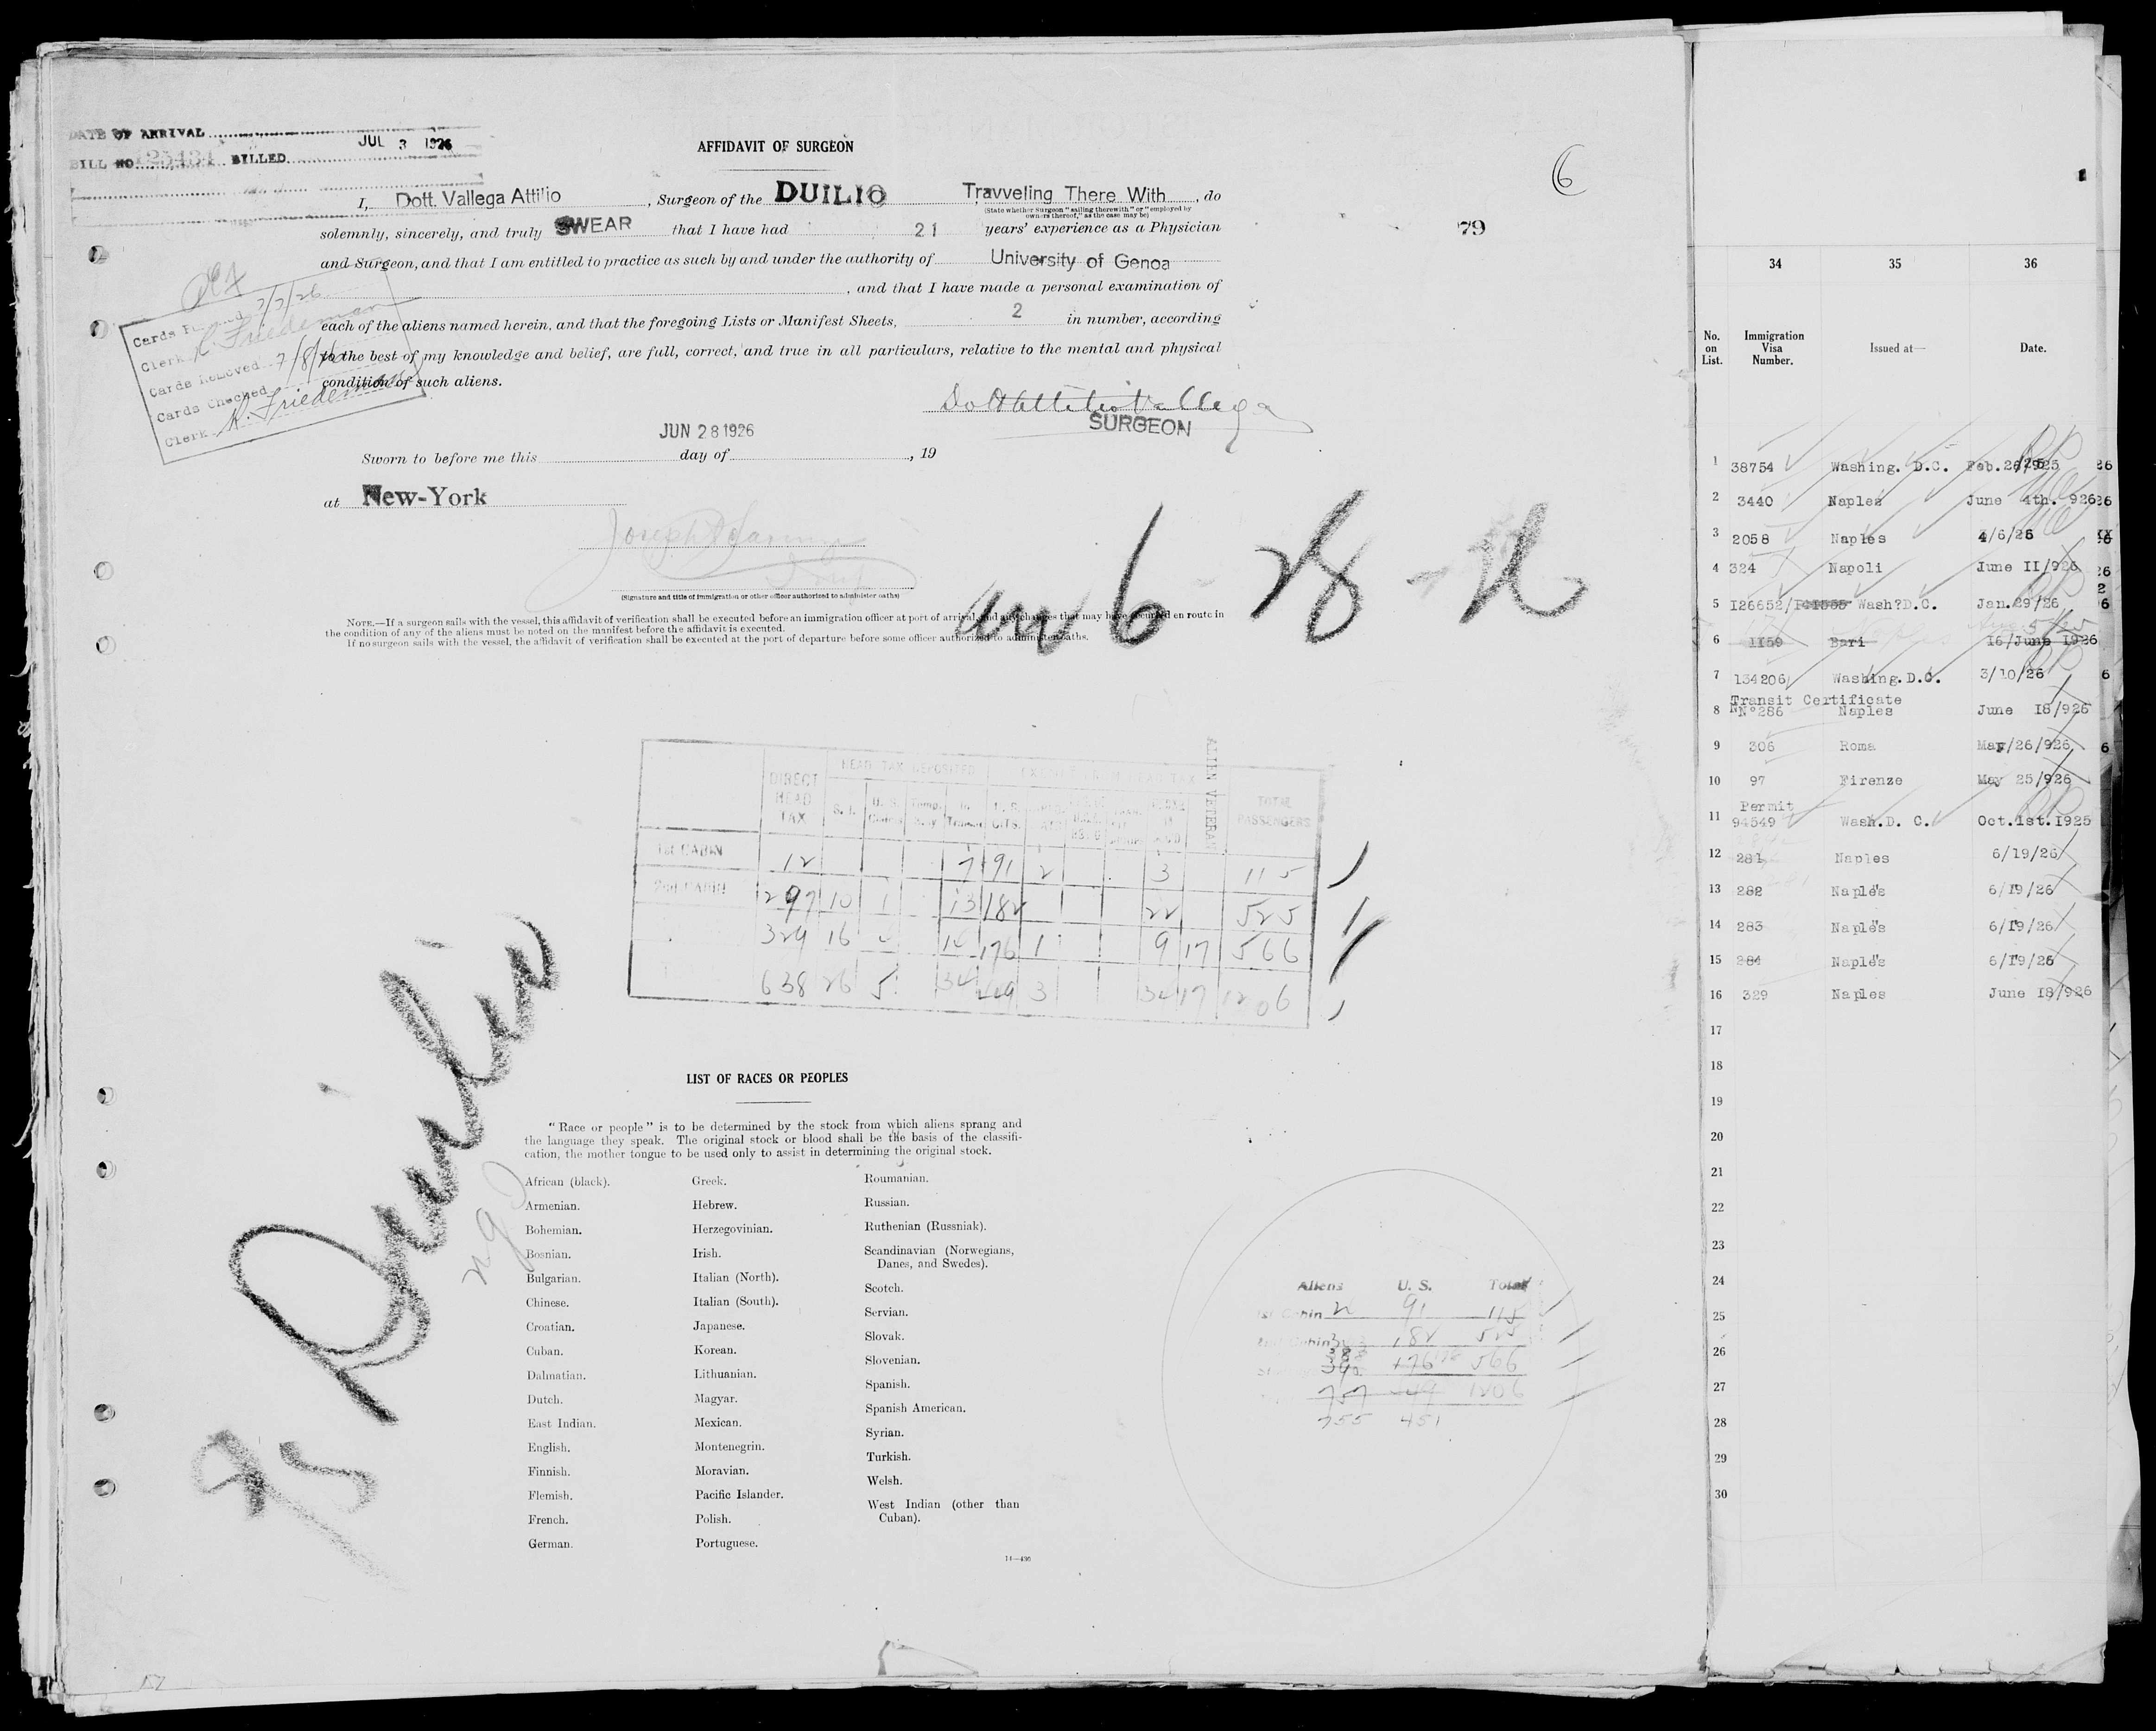 DATE OF ARRIVAL
JUL 3 1926
BILL NO. BILLED
AFFIDAVIT OF SURGEON
6
79
I, Dott. Vallega Attilio, Surgeon of the DUILIO Travveling There With, do
(State whether surgeon "sailing therewith" or "employed by
owners thereof," as the case may be)
solemnly, sincerely, and truly SWEAR that I have had 21 years' experience as a Physician
and Surgeon, and that I am entitled to practice as such by and under the authority of University of Genoa
, and that I have made a personal examination of
each of the aliens named herein, and that the foregoing Lists or Manifest Sheets, 2 in number, according
to the best of my knowledge and belief, are full, correct, and true in all particulars, relative to the mental and physical
condition of such aliens.
Cards 7/7/26
Clerk K. Friedeman
Cards Removed 7/8/26
Cards Checked
Clerk K. Friedeman
Dott Attilio Vallega
SURGEON
JUN 28 1926
Sworn to before me this day of , 19
at New-York
(Signature and title of immigration or other officer authorized to administer oaths)
6-28-26
NOTE.—If a surgeon sails with the vessel, this affidavit of verification shall be executed before an immigration officer at port of arrival, and any changes that may have occurred en route in
the condition of any of the aliens must be noted on the manifest before the affidavit is executed.
If no surgeon sails with the vessel, the affidavit of verification shall be executed at the port of departure before some officer authorized to administer oaths.
HEAD TAX DEPOSITED EXEMPT FROM HEAD TAX
DIRECT HEAD TAX S. I. In Transit U. S. CITS. ALIEN VETERAN TOTAL PASSENGERS
1st CABIN 12 7 91 2 3 115
2nd CABIN 297 10 1 13 182 22 525
329 16 176 1 9 17 566
638 26 5 34 449 3 34 17 1206
Duilio
LIST OF RACES OR PEOPLES
"Race or people" is to be determined by the stock from which aliens sprang and
the language they speak. The original stock or blood shall be the basis of the classifi-
cation, the mother tongue to be used only to assist in determining the original stock.
African (black).
Armenian.
Bohemian.
Bosnian.
Bulgarian.
Chinese.
Croatian.
Cuban.
Dalmatian.
Dutch.
East Indian.
English.
Finnish.
Flemish.
French.
German.
Greek.
Hebrew.
Herzegovinian.
Irish.
Italian (North).
Italian (South).
Japanese.
Korean.
Lithuanian.
Magyar.
Mexican.
Montenegrin.
Moravian.
Pacific Islander.
Polish.
Portuguese.
Roumanian.
Russian.
Ruthenian (Russniak).
Scandinavian (Norwegians,
Danes, and Swedes).
Scotch.
Servian.
Slovak.
Slovenian.
Spanish.
Spanish American.
Syrian.
Turkish.
Welsh.
West Indian (other than
Cuban).
14—436
Aliens U. S. Total
1st Cabin 91 115
2nd Cabin 182 525
388
340 176 566
757 449 1206
755 451
34 35 36
No. on List. Immigration Visa Number. Issued at— Date.
1 38754 Washing. D.C. Feb.26/925
2 3440 Naples June 4th. 926
3 2058 Naples 4/6/26
4 324 Napoli June II/926
5 I26652 Wash?D.C. Jan.29/26
6 1159 Bari 16/June 1926
7 134206 Washing.D.C. 3/10/26
Transit Certificate
8 N°286 Naples June I8/926
9 306 Roma May/26/926
10 97 Firenze May 25/926
Permit
11 94549 Wash.D. C. Oct.1st.1925
12 281 Naples 6/19/26
13 282 Naples 6/19/26
14 283 Naples 6/19/26
15 284 Naples 6/19/26
16 329 Naples June I8/926
17
18
19
20
21
22
23
24
25
26
27
28
29
30